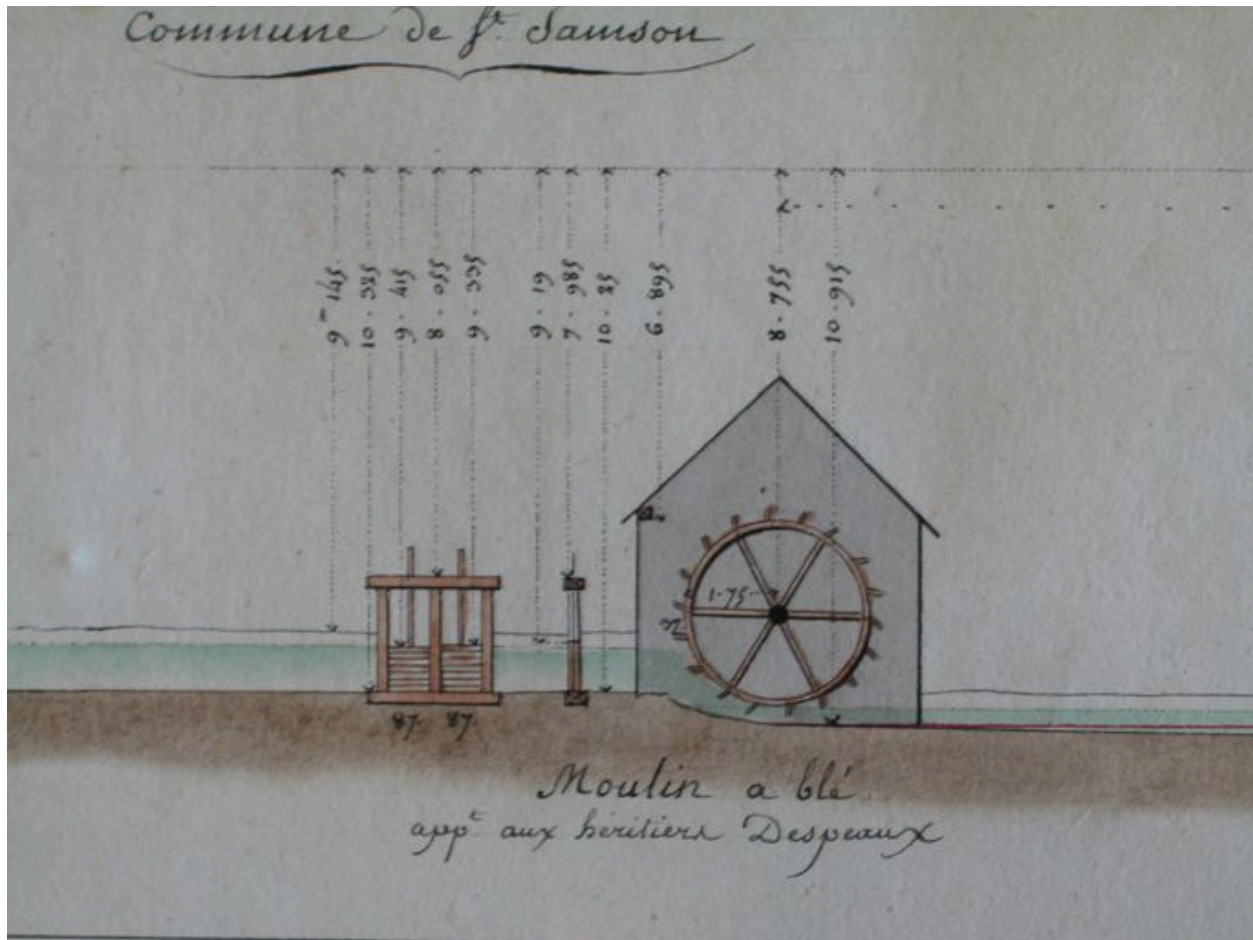 Commune de St. Samson
9m 145
10 . 325
9 . 415
8 . 055
9 . 395
9 . 19
7 . 985
10 . 25
6 . 895
8 . 755
10 . 915
1.75
87. 87.
Moulin a blé
appt. aux héritiers Despeaux